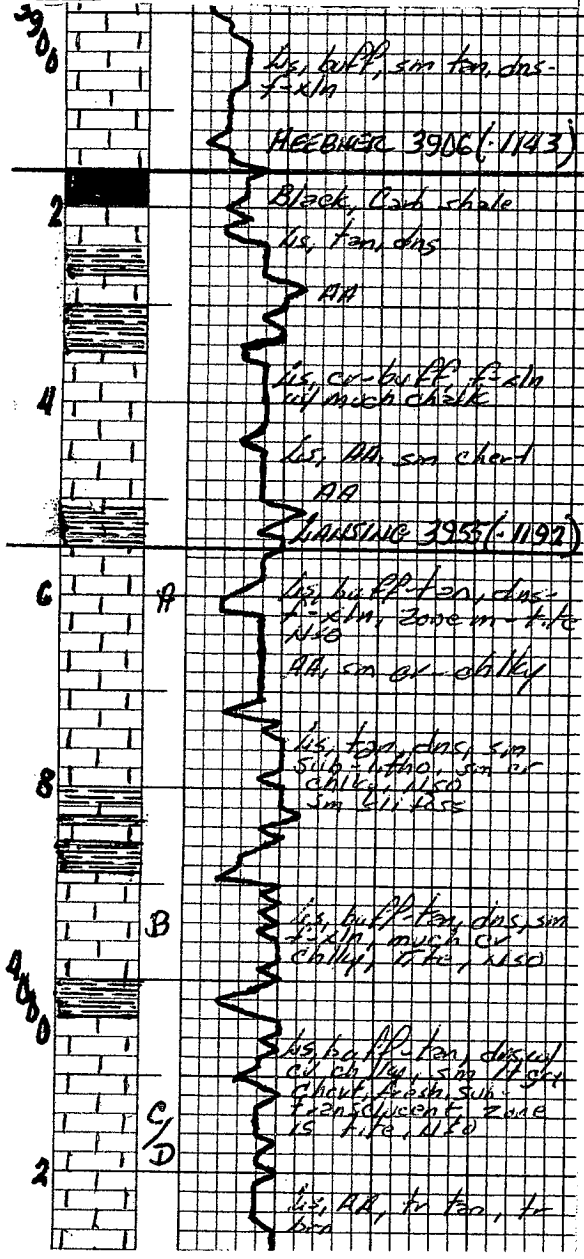 3900
Ls, buff, sm tan, dns-
f-xln
HEEBNER 3906 (-1143)
2
Black, Carb shale
Ls, tan, dns
AA
Ls, cr-buff, f-xln
w/ much chalk
4
Ls, AA, sm chert
AA
LANSING 3955 (-1192)
6
A
Ls, buff-tan, dns-
f-xln, zone m- tite
NSO
AA, sm cr-chlky
Ls, tan, dns, sm
sub-litho, sm cr
chlky, NSO
8
sm foss
B
Ls, buff-tan, dns, sm
f-xln, much cr
chlky, tite, NSO
4000
Ls, buff-tan, dns, w/
cr chlky, sm lt gry
Chert, fresh, sub-
translucent, zone
is tite, NSO
C/D
2
Ls, AA, tr tan, tr
brn